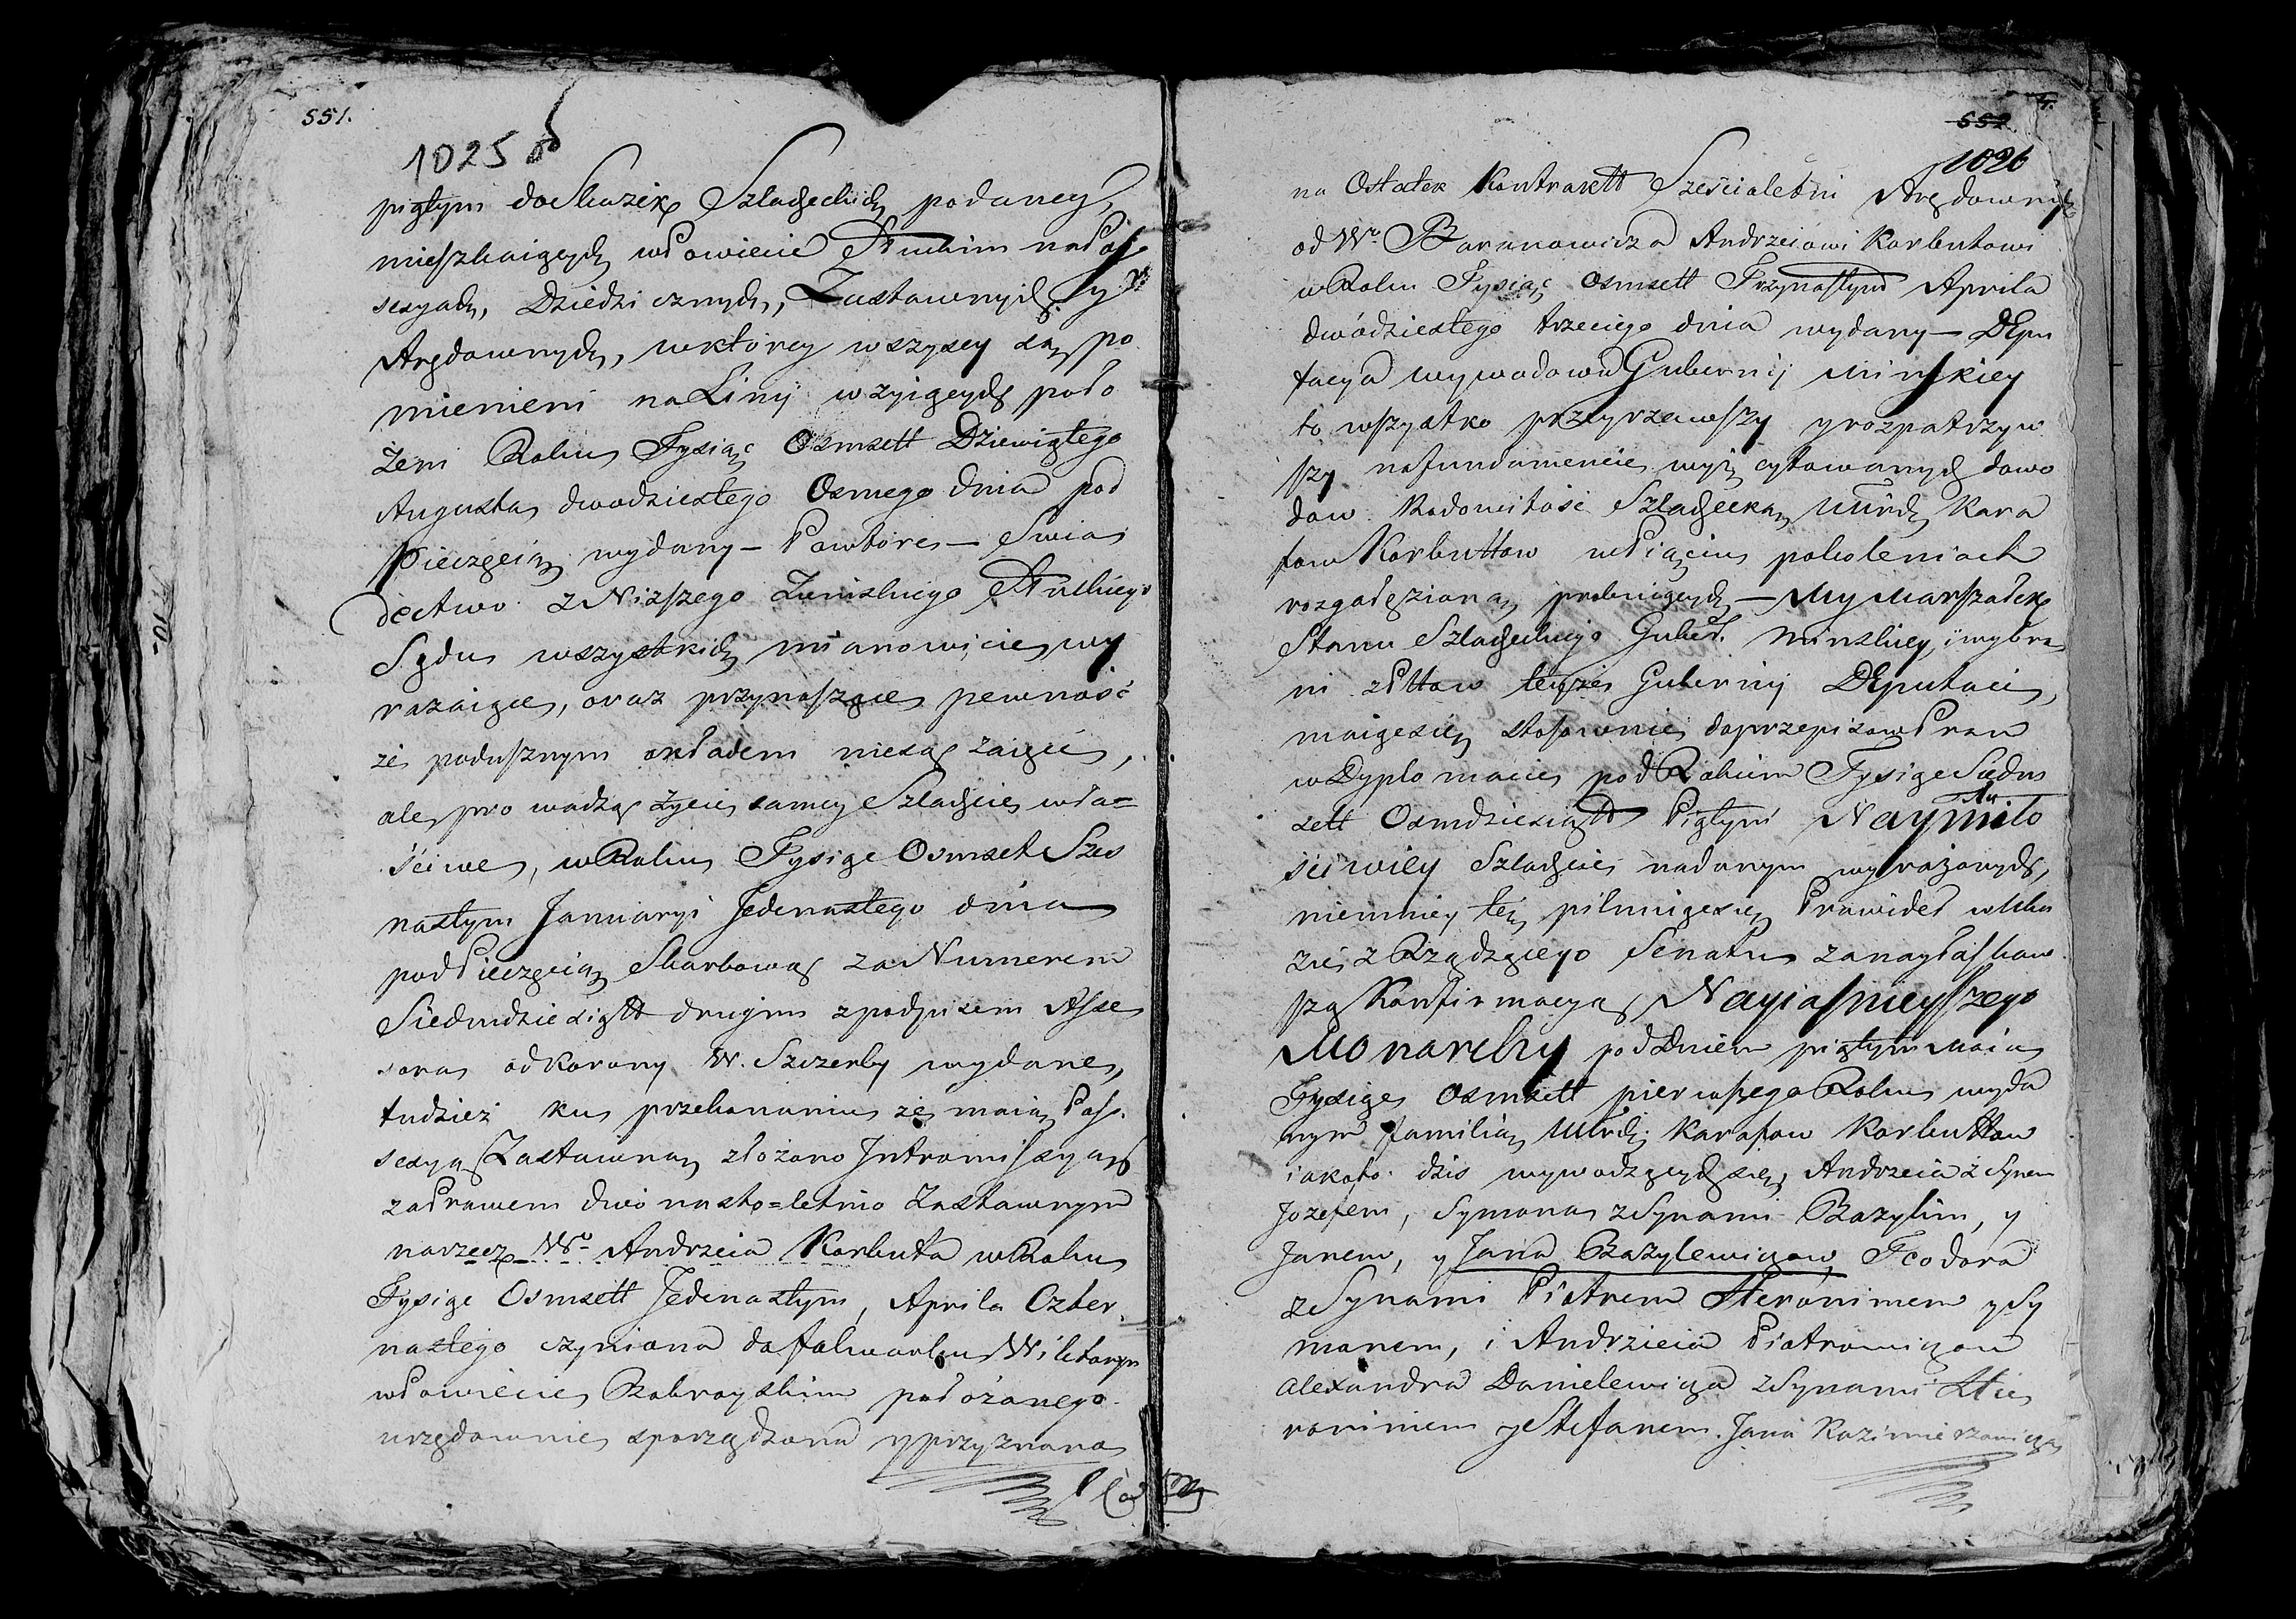 551.
1025
piętym do Skazek Szlacheckich podaney,
mieszkaiących w Powiecie Słuckim na Pos
sesyach, Dziedzicznych, Zastawnych, y
Arędownych, w ktorey wszyscy są po
mienieni na Linij wzyiących poło
żeni Roku Tysiąc Osmsett Dziewiątego
Augusta dwódziestego Osmego dnia pod
pieczęcią wydany — Powtore — Swia
dectwo z Niższego Ziemskiego Słuckiego
Sądu wszystkich mianowicie wy
rażaiące, oraz przynoszące pewność
że podusznym okładem niesą zaięci,
ale prowadzą życie samey Szlachcie wła=
ściwe, w Roku Tysiąc Osmset Szes
nastym Januaryi Jedenastego dnia
pod Pieczęcią Skarbową za Numerem
Siedmdziesiątt drugim z podpisem Asse
sora od Korony W. Szczerby wydane,
tudzież ku przekonaniu że maią Pos
sesyą Zastawną złożono Intromissyą
za Prawem dwónasto=letnio Zastawnym
na rzecz Wo Andrzeia Korbuta w Roku
Tysiąc Osmsett Jedenastym, Aprila Czter
nastego czyniona do falwarku Wiletowa
w Powiecie Bobroyskim położonego
urzędownie sporządzona y przyznana
4.
552
1026
na Ostatek Kontraktt Sześcioletni Arędowny
od Wo Baranowicza Andrzeiowi Korbutowi
w Roku Tysiąc Osmsett Trzynastym Aprila
dwódziestego trzeciego dnia wydany — DEpu
tacya wywodowa Gubernij Minskiey
to wszystko przeyrzawszy y rozpatrzyw
szy na fundamencie wyż cytowanych dowo
dow Rodowitość Szlachecką Uurdz Kara
fow Korbuttow w Pięciu pokoleniach
rozgałęzioną probuiących — My Marszałek
Stanu Szlacheckiego Guber. Minskiey, i wybra
ni z Pttow teyże Gubernij DEputaci,
maiąc się stosownie do przepisow Praw
w Dyplomacie pod Rokiem Tysiąc Siedm
sett Osmdziesiątt Piątym Naymiło
ściwiey Szlachcie nadanym wyrażonych,
niemniey też pilnuiąc się Prawideł w Uka
zie z Rządzącego Senatu za nayłaskaw
szą Konfirmacyą Nayiasnieyszego
Monarchy pod Dniem piątym Maia
Tysiąc Osmsett pierwszego Roku wyda
nym familią Uurdz. Karafow Korbuttow
iakoto dzis wywodzących się, Andrzeia z Synem
Jozefem, Symona z Synami Bazylim, y
Janem, y Jana Bazylewiczow, Teodora
z Synami Piotrem Hieronimem y Sy
monem, i Andrzeia Piotrowiczow
Alexandra Danielewicza z Synami Hie
ronimem y Stefanem. Jana Kazimierzowicza